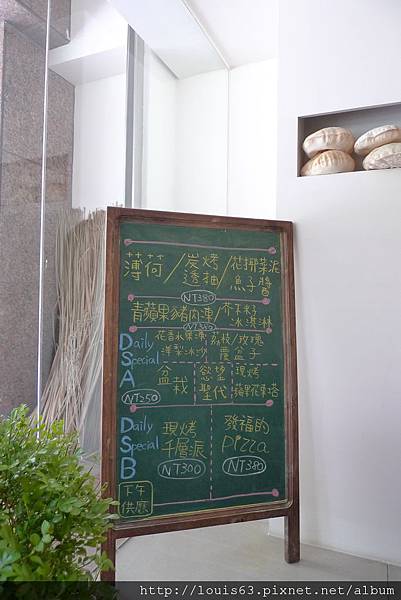 薄荷/炭烤透抽/花椰菜泥魚子醬
NT380
青蘋果豬肉凍/芥末籽冰淇淋
NT380
Daily Special A
花香水果凍
洋梨冰沙
荔枝/玫瑰
覆盆子
盆栽
慾望聖代
現烤蘋果花果塔
NT250
Daily Special B
現烤千層派
NT300
發福的pizza
NT380
下午供應
http://louis63.pixnet.net/album